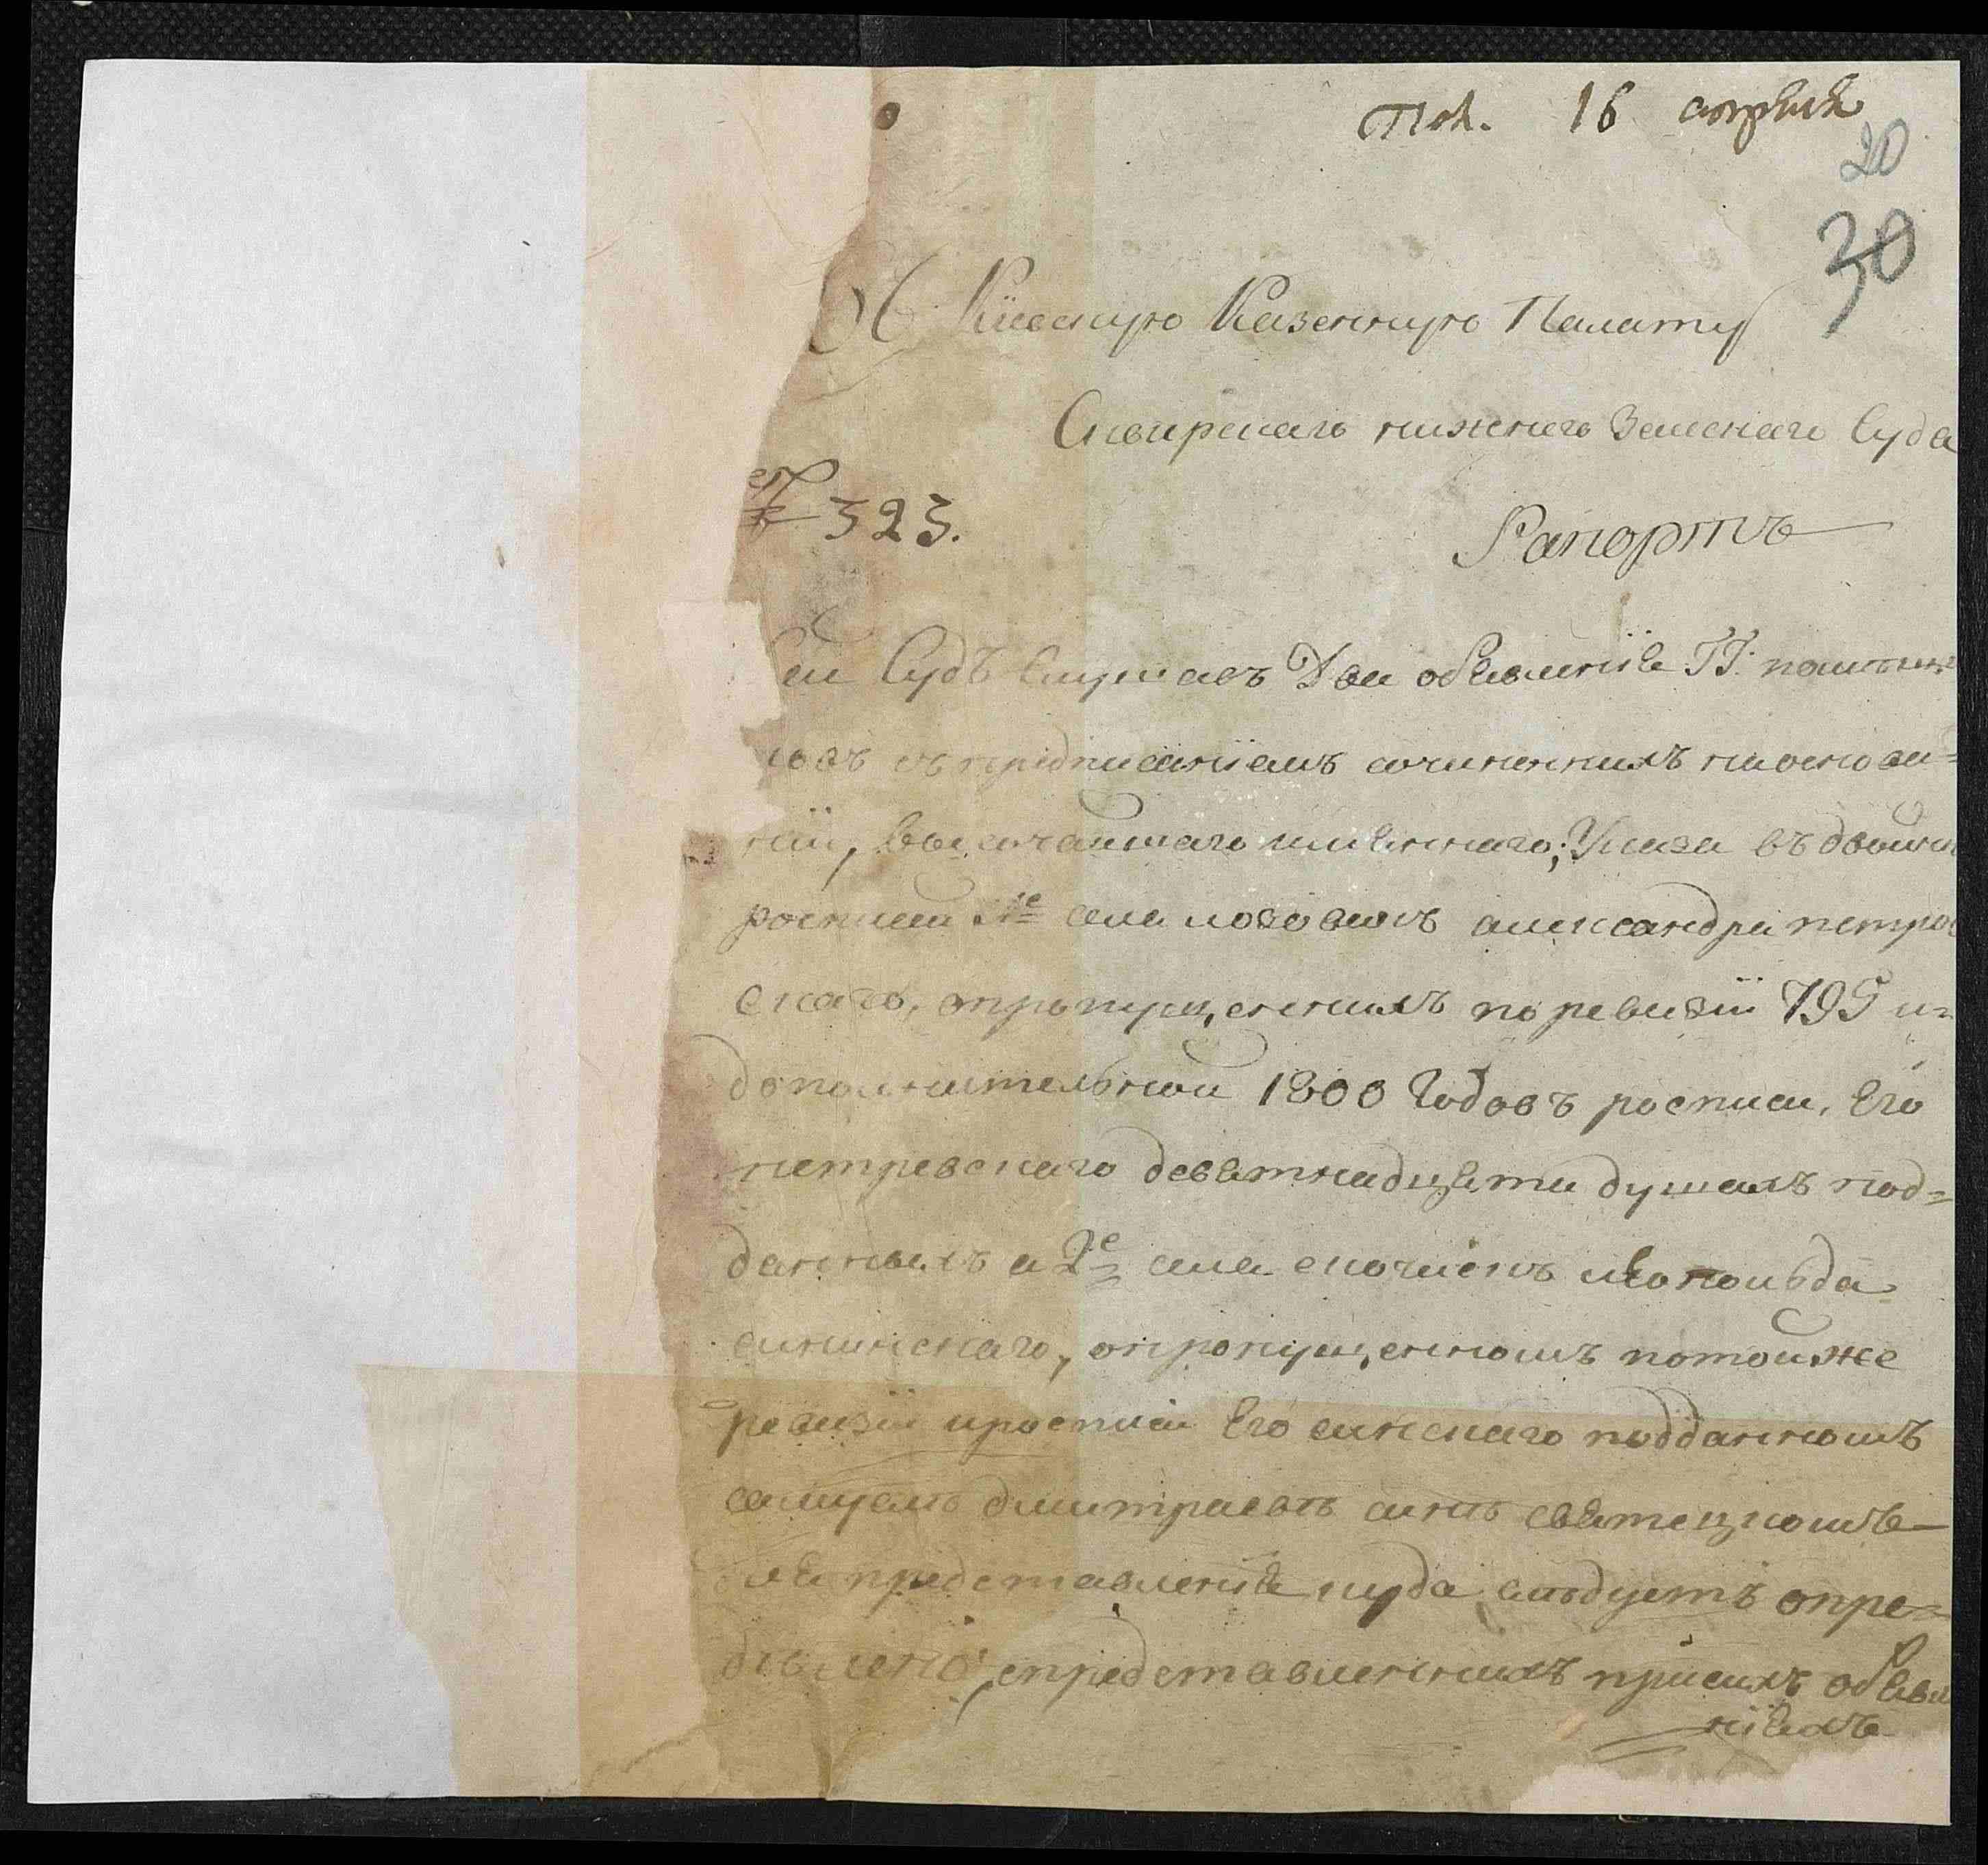 Пол. 16 апреля
20
30
В Киевскую Казенную Палату
Сквирскаго нижнего Земскаго Суда
№ 323.
Рапортъ
Сей Судъ Слушавъ Два объявления ГГ: помещи
ковъ съ предписаниемъ сочиненнихъ на основа=
нии, высочайшаго имяннаго, Указа въ двойни
росписи 1е села лозовикъ александра петров
скаго, опропущенныхъ по ревизии 795 и=
дополнительной 1800 Годовъ росписи, Его
петревскаго девятнадцяти душахъ под=
данныхъ а 2е села
синискаго, опропущенномъ потойже
ревизии иросписи Его синскаго подданномъ
самуель дмитриевъ синъ
для представления куда следуетъ опре=
делено, опредставленнихъ присихъ объявле
нияхъ